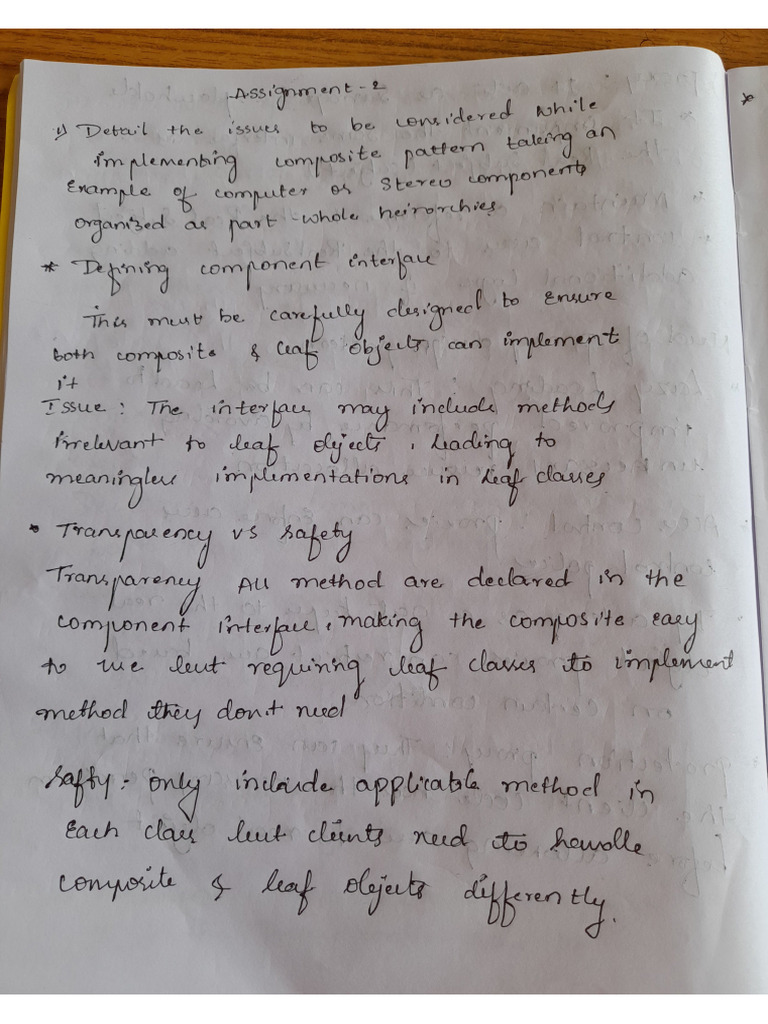 Assignment - 2
1) Detail the issues to be considered while
implementing composite pattern taking an
Example of computer or stereo components
organized as part-whole heirorchies
* Defining component interface
This must be carefully designed to ensure
both composite & leaf objects can implement
it
Issue: The interface may include methods
irrelevant to leaf objects, leading to
meaningless implementations in leaf classes
• Transparency vs safety
Transparency All method are declared in the
component interface, making the composite easy
to use but requiring leaf classes to implement
method they don't need
Safty: only include applicable method in
Each class but clients need to handle
composite & leaf objects differently.